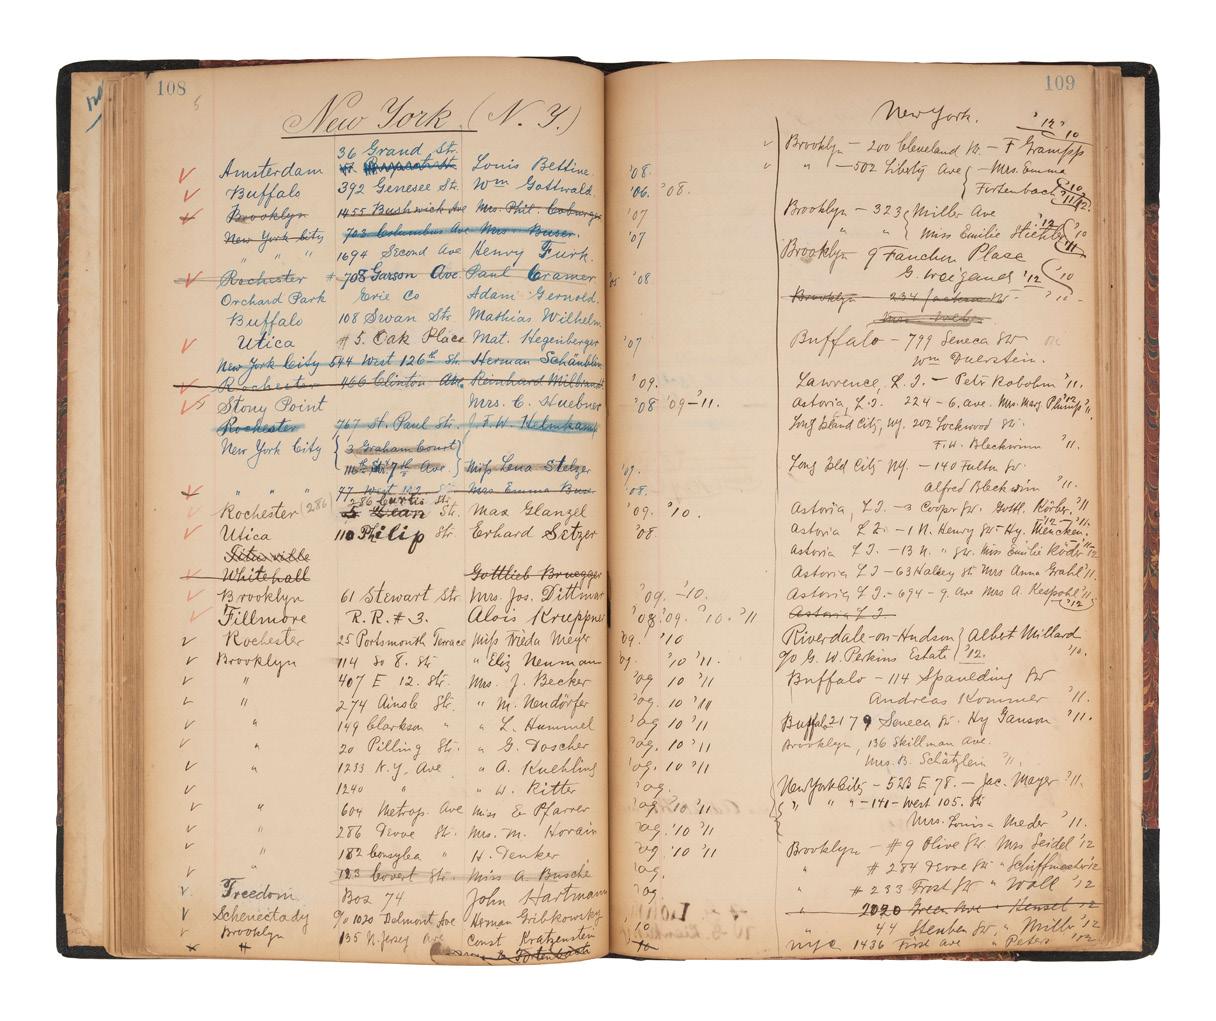 108
New York (N. Y.)
36 Grand Str.
Amsterdam Louis Bettine. '08.
Buffalo 392 Genesee Str. Wm Gottwald. '06. '08.
Brooklyn 1455 Bushwick Ave Mrs. Phil. Coburger '07
New York City 703 Columbus Ave Mrs. Buser. '07
" " " 1694 Second Ave Henry Furk.
Rochester # 708 Garson Ave. Paul Cramer '08
Orchard Park Erie Co Adam Gernold.
Buffalo 108 Swan Str. Mathias Wilhelm.
Utica # 5. Oak Place Mat. Hegenberger '07
New York City 544 West 126th Str. Herman Schäublin
Rochester 466 Clinton Ave. Reinhard Milbrandt '09.
Stony Point Mrs. C. Huebner '08 '09-'11.
Rochester 767 St. Paul Str. J. F. W. Helmkamp
New York City { 3 Graham Court }
116th Str. 7th Ave. Miss Lena Stelzer '09.
" " " 77 West 102 St. Mrs Emma '08.
286 Curtis St.
Rochester (286) 5 Str. Max Glanzel '09. '10.
Utica 110 Philip Str. Erhard Setzer '08.
Whitehall Gottlieb Bruegger
Brooklyn 61 Stewart Str. Mrs. Jos. Dittmar '09. -'10.
Fillmore R.R. # 3. Alois Kruppner '08. '09. '10. '11
Rochester 25 Portsmouth Terrace Miss Frieda Meyer '09. '10
Brooklyn 114 So 8. Str. " Eliz Neumann '09. '10 '11.
" 407 E 12. Str. Mrs. J. Becker '09 '10 '11
" 274 Ainsle Str. " M. Neudörfer '09. 10 '11
" 149 Clarkson " " L. Hummel '09. 10 '11
" 20 Pilling Str. " G. Doscher '09. 10 '11
" 1233 N.Y. Ave " A. Kuehling '09. '10 '11
1240 " " W. Ritter '09.
" 604 Metrop. Ave Miss E Pfarrer '09 '10 '11
" 286 Devoe Str. Mrs. M. Horain '09. '10 '11
" 182 " H. Denker '09 '10 '11
" 183 Covert Str. Miss A Busche '09.
Freedom Box 74 John Hartmann '09.
Schenectady c/o 1020 Belmont Ave Herman Gribkowsky
Brooklyn 135 N. Jersey Ave Const Kratzenstein '10
Fortenbach '10
109
New York.
'12 '10
Brooklyn - 200 Cleveland Str - F Grampp
" - 502 Liberty Ave { - Mrs. Emma
Fortenbach '10 '11/12
Brooklyn - 323 { Miller Ave
" " { Miss Emilie '12 '10 '11
Brooklyn 9 Fanchon Place
G. Weigand '12 '10
Brooklyn 234 Jackson Str - '10
Mrs. Weber
Buffalo - 799 Seneca Str
Wm Duerstein.
Lawrence, L. I. - Petr Kobohm '11.
Astoria, L. I. 224 - 6. Ave. Mrs. Mary '12 '11
Long Island City, Ny. 202 Lockwood Str.
F. W. Bleckwenn '11.
Long Isld City NY. - 140 Fulton Str.
Alfred Bleckwenn '11.
Astoria, L I. - 3 Coopr Str. Gottl. Körber. '11
Astoria L I. - 1 N. Henry Str. Hy. Mencken. '12 - '11.
Astoria L I - 13 N. " Str. Miss Emilie Röder '12 '11
Astoria L I - 63 Halsey St Mrs Anna Grahl '11.
Astoria L I - 694 - 9. Ave Mrs A. Kespohl '11. '12
Astoria L I.
Riverdale-on-Hudson { Albert Millard
c/o G. W. Perkins Estate ('12. '10.
Buffalo - 114 Spaulding Str
Andreas Kommer '11.
Buffalo 2179 Seneca Str. Hy Ganson '11.
Brooklyn, 136 Skillman Ave.
Mrs. B. Schätzlein '11.
New York City - 523 E 78. - Jac. Mayer '11.
" " " - 141 - West 105. Str
Mrs. Louis Meder '11.
Brooklyn - # 9 Olive Str. Mrs Seidel '12
" # 284 Devoe Str. " '12
" # 233 Frost Str " Wall '12
" 2020 Green Ave " Hensel '12
" 44 Steuben Str. " Mills '12
nyc 1436 First Ave " Peters '12